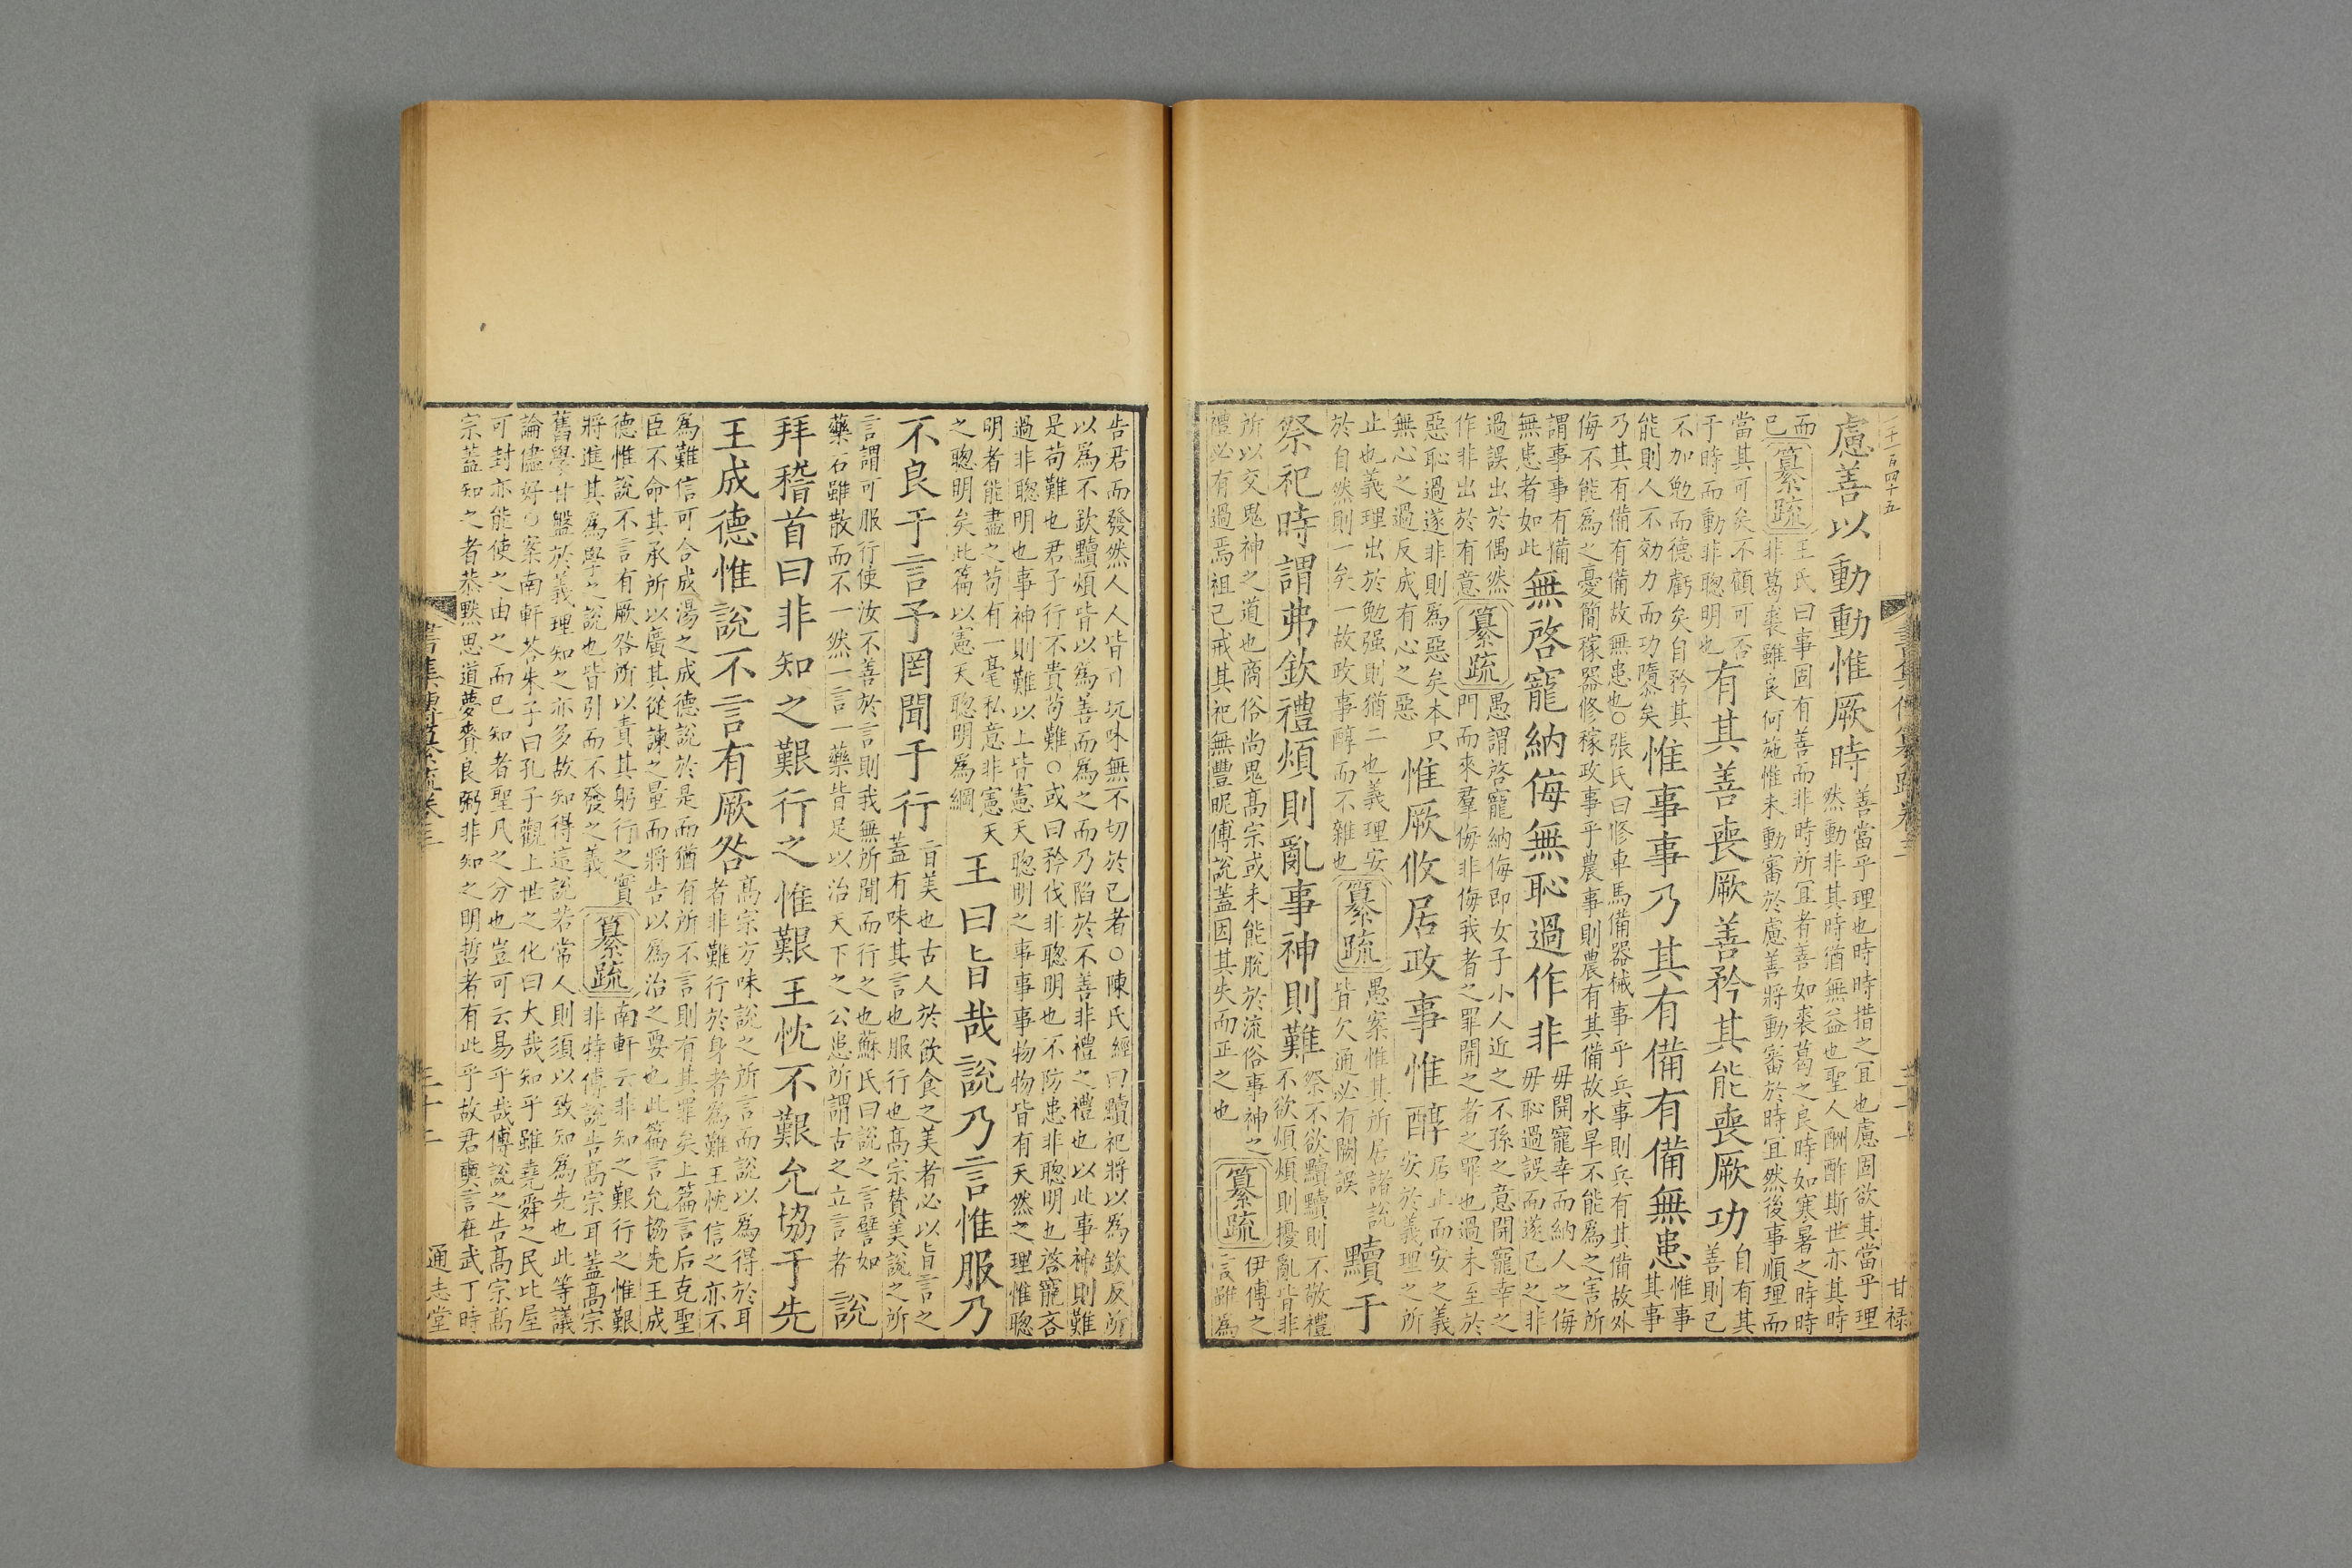 慮善以動動惟厥時
善當乎理也時時措之宜也慮固欲其當乎理
然動非其時猶無益也聖人酬酢斯世亦其時
而
已
纂疏
王氏曰事固有善而非時所宜者善如裘葛之良時如寒暑之時時
非葛裘雖良何施惟未動審於慮善將動審於時宜然後事順理而
當其可矣不顧可否
于時而動非聰明也
有其善喪厥善矜其能喪厥功
自有其
善則已
不加勉而德虧矣自矜其
能則人不効力而功隳矣
惟事事乃其有備有備無患
惟事
其事
乃其有備有備故無患也○張氏曰修車馬備器械事乎兵事則兵有其備故外
侮不能爲之憂簡稼器修稼政事乎農事則農有其備故水旱不能爲之害所
謂事事有備
無患者如此
無啓寵納侮無恥過作非
毋開寵幸而納人之侮
毋恥過誤而遂己之非
過誤出於偶然
作非出於有意
纂疏
愚謂啓寵納侮即女子小人近之不孫之意開寵幸之
門而來羣侮非侮我者之罪開之者之罪也過未至於
惡恥過遂非則爲惡矣本只
無心之過反成有心之惡
惟厥攸居政事惟醇
居止而安之義
安於義理之所
止也義理出於勉强則猶二也義理安
於自然則一矣一故政事醇而不雜也
纂疏
愚案惟其所居諸説
皆欠通必有闕誤
黷于
祭祀時謂弗欽禮煩則亂事神則難
祭不欲黷黷則不敬禮
不欲煩煩則擾亂皆非
所以交鬼神之道也商俗尚鬼高宗或未能脫於流俗事神之
禮必有過焉祖己戒其祀無豐昵傅說蓋因其失而正之也
纂疏
伊傅之
言雖爲
甘祿
告君而發然人人皆可玩味無不切於已者○陳氏經曰黷祀將以爲欽反所
以爲不欽黷煩皆以爲善而爲之而乃陷於不善非禮之禮也以此事神則難
是苟難也君子行不貴苟難○或曰矜伐非聰明也不防患非聰明也啓寵吝
過非聰明也事神則難以上皆憲天聰明之事事事物物皆有天然之理惟聰
明者能盡之苟有一毫私意非憲天
之聰明矣此篇以憲天聰明爲綱
王曰旨哉說乃言惟服乃
不良于言予罔聞于行
旨美也古人於飲食之美者必以旨言之
蓋有味其言也服行也高宗賛美說之所
言謂可服行使汝不善於言則我無所聞而行之也蘇氏曰說之言譬如
藥石雖散而不一然一言一藥皆足以治天下之公患所謂古之立言者
說
拜稽首曰非知之艱行之惟艱王忱不艱允協于先
王成德惟說不言有厥咎
高宗方味說之所言而說以爲得於耳
者非難行於身者爲難王忱信之亦不
爲難信可合成湯之成德說於是而猶有所不言則有其罪矣上篇言后克聖
臣不命其承所以廣其從諫之量而將告以爲治之要也此篇言允協先王成
德惟說不言有厥咎所以責其躬行之實
將進其爲學之說也皆引而不發之義
纂疏
南軒云非知之艱行之惟艱
非特傅說告高宗耳蓋高宗
舊學甘盤於義理知之亦多故知得這說若常人則須以致知爲先也此等議
論儘好○案南軒荅朱子曰孔子觀上世之化曰大哉知乎雖堯舜之民比屋
可封亦能使之由之而已知者聖凡之分也豈可云易乎哉傅說之告高宗高
宗蓋知之者恭黙思道夢賚良弼非知之明哲者有此乎故君奭言在武丁時
書集傳纂疏卷三
二十二
通志堂